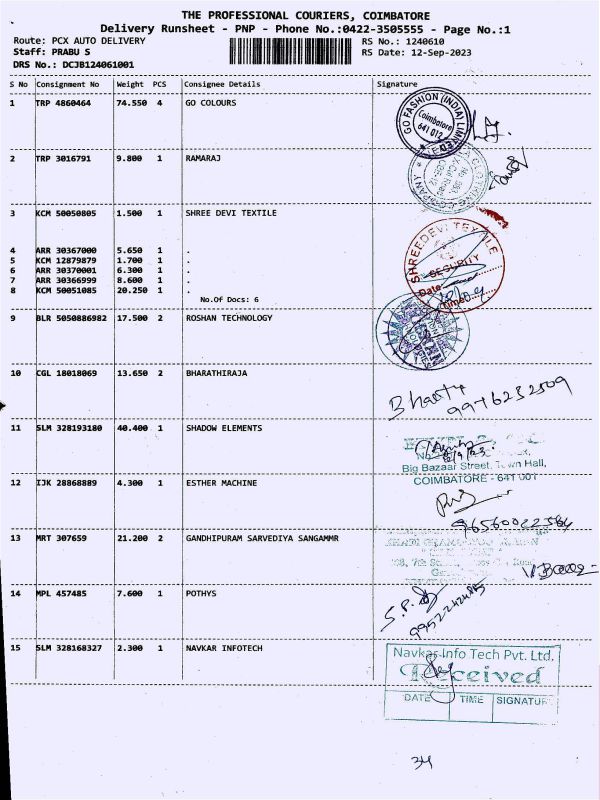 THE PROFESSIONAL COURIERS, COIMBATORE
Delivery Runsheet - PNP - Phone No.:0422-3505555 - Page No.:1
Route: PCX AUTO DELIVERY RS No.: 1240610
Staff: PRABU S RS Date: 12-Sep-2023
DRS No.: DCJB124061001
S No Consignment No Weight PCS Consignee Details Signature
1 TRP 4860464 74.550 4 GO COLOURS
GO FASHION (INDIA) LIMITED
Coimbatore
641 012
2 TRP 3016791 9.800 1 RAMARAJ
3 KCM 50050805 1.500 1 SHREE DEVI TEXTILE
SHREEDEVI TEXTILE
SECURITY
Date
Time
4 ARR 30367000 5.650 1 .
5 KCM 12879879 1.700 1 .
6 ARR 30370001 6.300 1 .
7 ARR 30366999 8.600 1 .
8 KCM 50051085 20.250 1 .
No.Of Docs: 6
9 BLR 5050886982 17.500 2 ROSHAN TECHNOLOGY
10 CGL 18018069 13.650 2 BHARATHIRAJA
11 SLM 328193180 40.400 1 SHADOW ELEMENTS
Big Bazaar Street, Town Hall,
COIMBATORE - 641 001
12 IJK 28868889 4.300 1 ESTHER MACHINE
13 MRT 307659 21.200 2 GANDHIPURAM SARVEDIYA SANGAMMR
14 MPL 457485 7.600 1 POTHYS
15 SLM 328168327 2.300 1 NAVKAR INFOTECH
Navkar Info Tech Pvt. Ltd.
Received
DATE TIME SIGNATUR
34